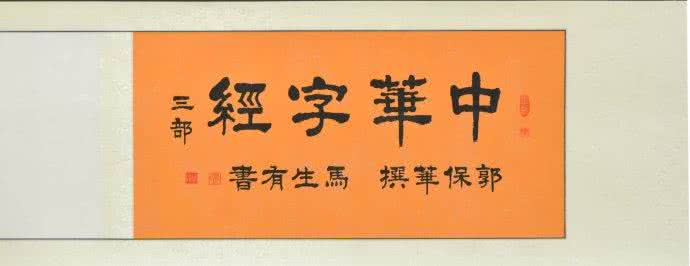 中華字經
三部
郭保華撰 馬生有書